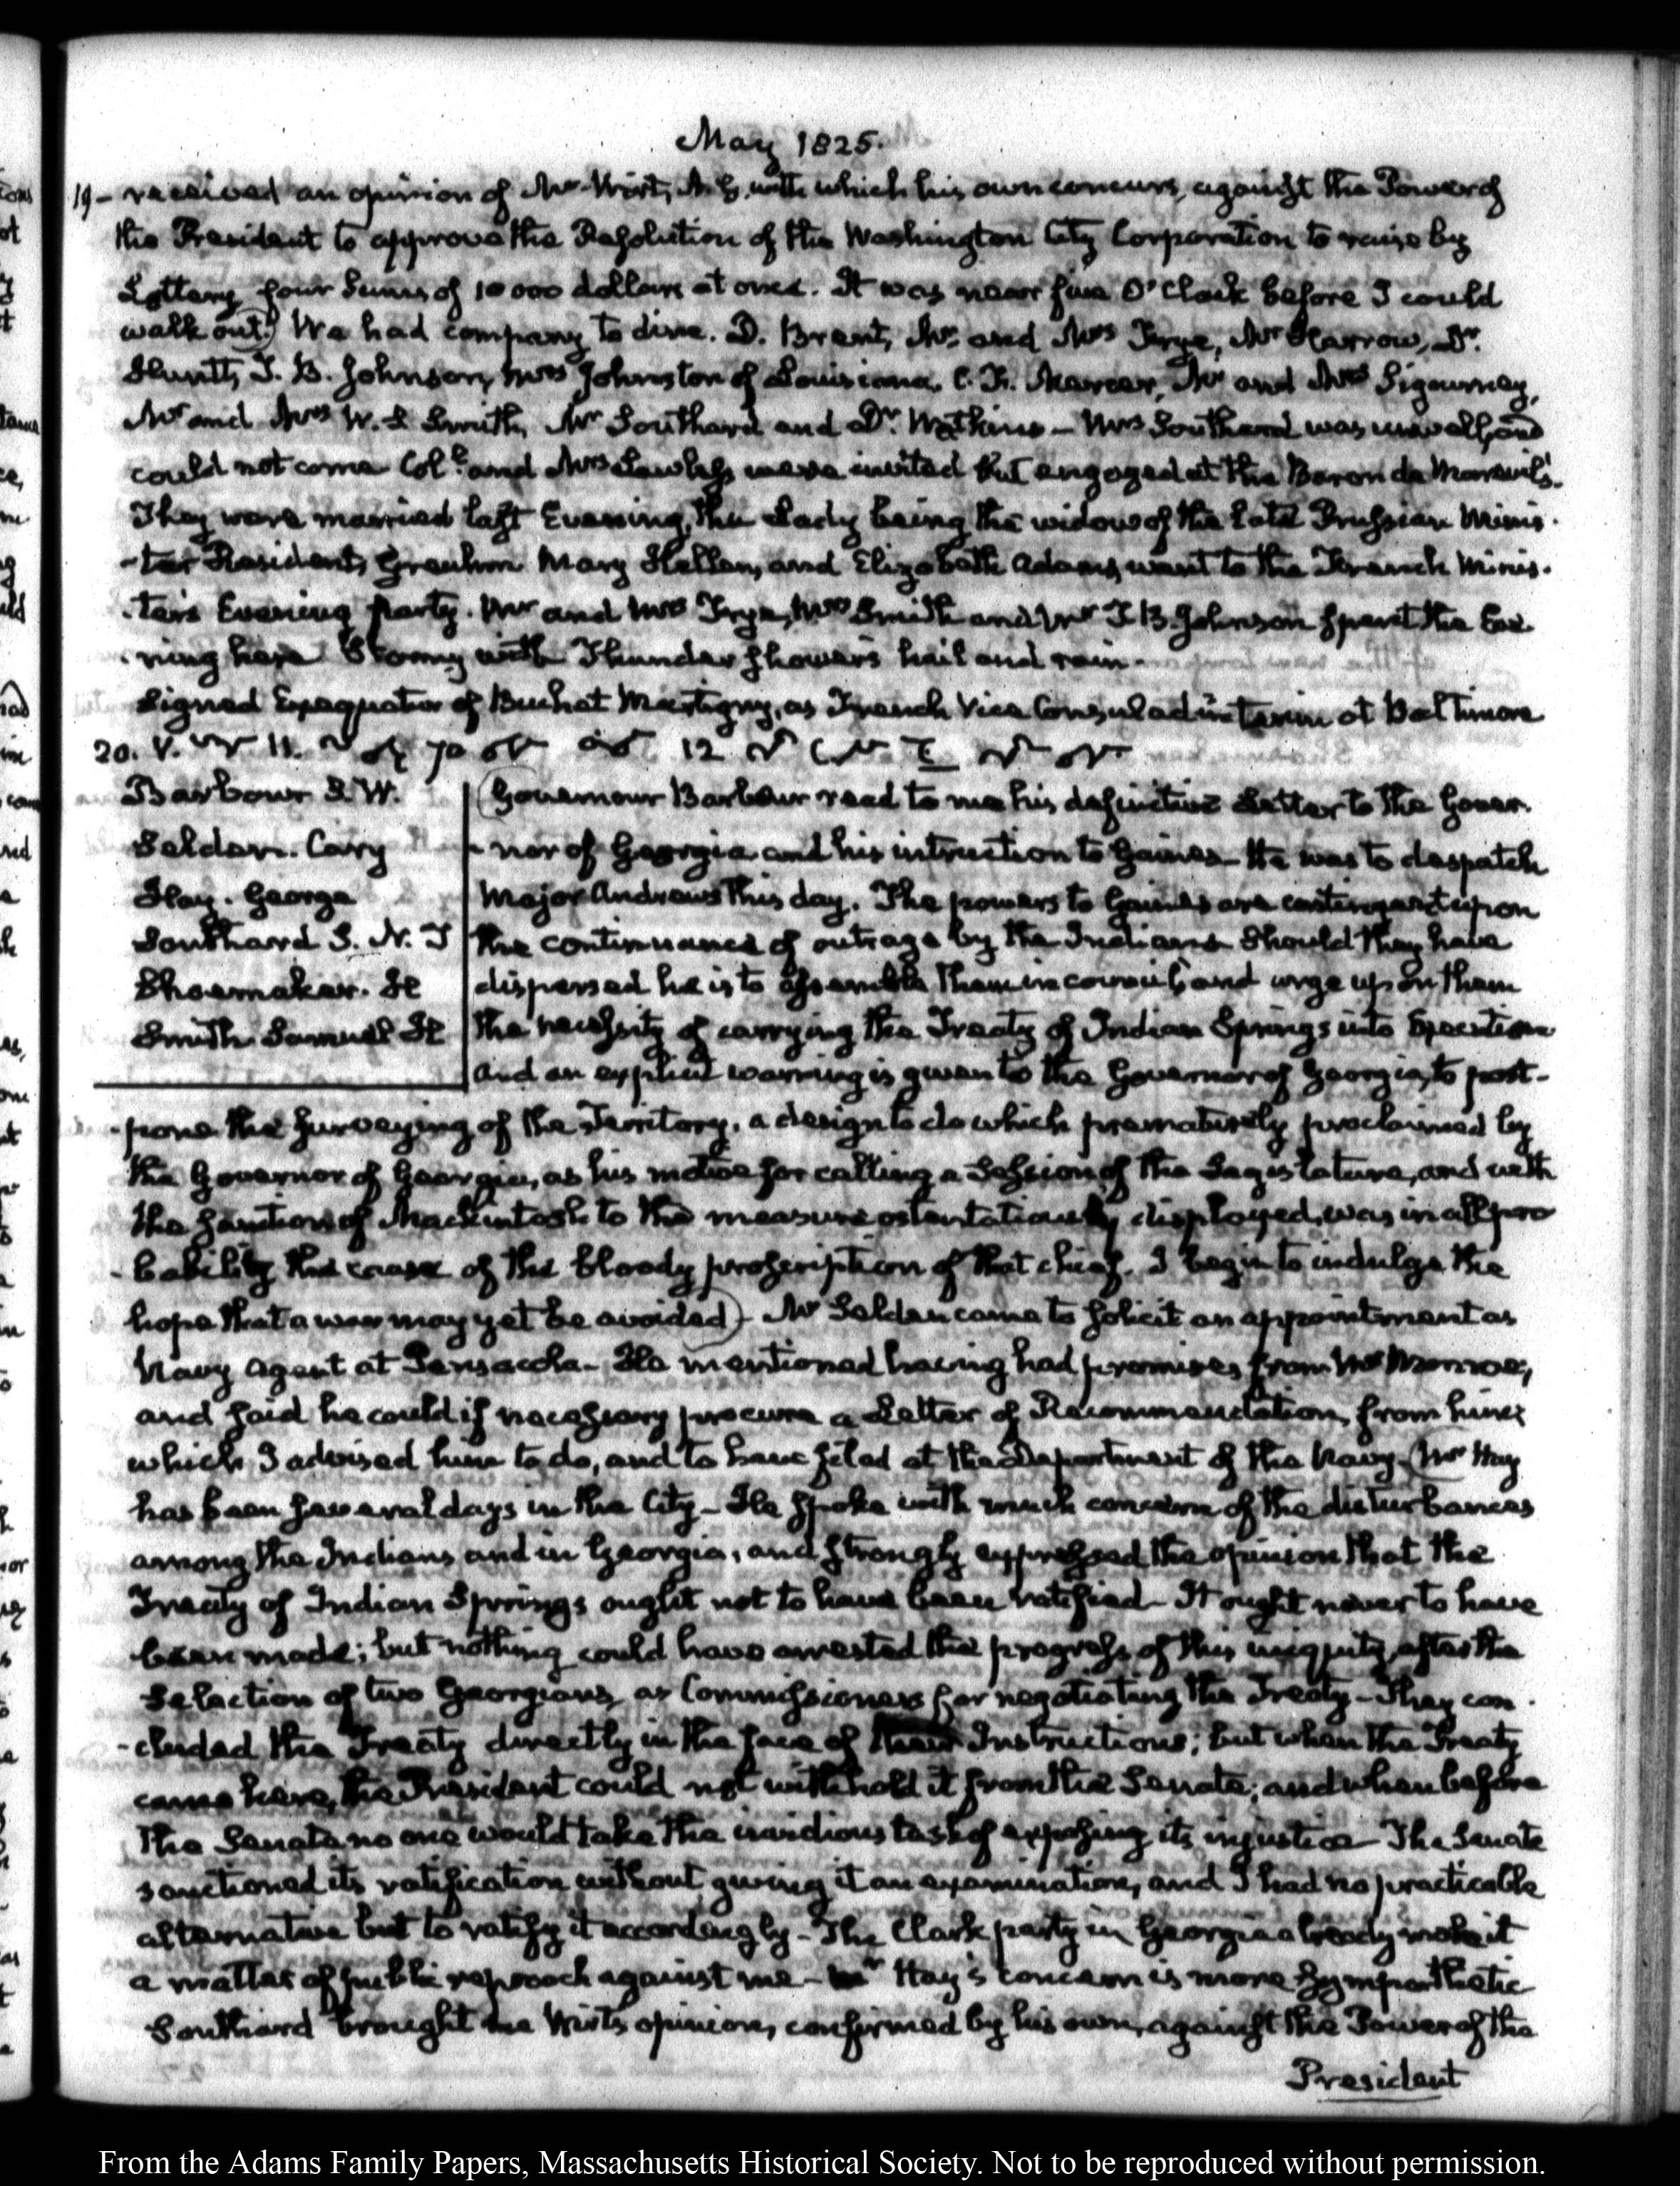 May 1825.
19- received an opinion of Mr Wirt, A. G. with which his own concurs, against the Power of
the President to approve the Resolution of the Washington City Corporation to raise by
Lottery four Sums of 10 000 dollars at once. It was near five O'Clock before I could
walk out) We had company to dine. D. Brent, Mr and Mrs Frye, Mr Harrow, Dr.
Hunt, J. B. Johnson, Mrs Johnston of Louisiana, C. F. Mercer, Mr and Mrs Sigourney,
Mr and Mrs W. S Smith, Mr Southard and Dr. Watkins- Mrs Southard was unwell, and
could not come Coll. and Mrs Lawless were invited but engaged at the Baron de Mareuil's.
They were married last Evening, the Lady being the widow of the late Prussian Minis-
-ter Resident, Greuhm Mary Hellen, and Elizabeth Adams, went to the French Minis-
-ter's Evening party. Mr and Mrs Frye, Mrs Smith and Mr J. B. Johnson spent the Eve
-ning here Stormy with Thunder showers hail and rain-
Signed Exequatur of Buchet Martigny, as French Vice Consul ad interim at Baltimore
20. V. 11. 12
Barbour S. W.
Selden. Cary
Hay. George
Southard S. N. T
Shoemaker. Se
Smith Samuel Se
(Governour Barbour read to me his definitive Letter to the Gover-
-nor of Georgia and his intruction to Gaines- He was to despatch
Major Andrews this day. The powers to Gaines are contingent upon
the continuance of outrage by the Indians Should they have
dispersed he is to assemble them in council, and urge upon them
the necessity of carrying the Treaty of Indian Springs into Execution
and an explicit warning is given to the Governor of Georgia, to post-
-pone the surveying of the Territory, a design to do which prematurely proclaimed by
the Governor of Georgia, as his motive for calling a Session of the Legislature, and with
the sanction of Mackintosh to the measure ostentatiously displayed, was in all pro
-bability the cause of the bloody proscription of that chief. I begin to indulge the
hope that a war may yet be avoided)- Mr Selden came to solicit an appointment as
Navy Agent at Pensacola- He mentioned having had promises from Mr Monroe;
and said he could if necessary procure a Letter of Recommendation from him
which I advised him to do, and to have filed at the Department of the Navy- (Mr Hay
has been several days in the City- He spoke with much concern of the disturbances
among the Indians and in Georgia, and strongly expressed the opinion that the
Treaty of Indian Springs ought not to have been ratified- It ought never to have
been made; but nothing could have arrested the progress of this iniquity, after the
Selection of two Georgians, as Commissioners for negotiating the Treaty- They con-
-cluded the Treaty directly in the face of their Instructions; but when the Treaty
came here, the President could not withhold it from the Senate; and when before
the Senate no one would take the invidious task of exposing its injustice- The Senate
sanctioned its ratification without giving it an examination, and I had no practicable
alternative but to ratify it accordingly- The Clark party in Georgia already make it
a matter of public reproach against me- Mr Hay's concern is more sympathetic
Southard brought me Wirt's opinion, confirmed by his own, against the Power of the
President
From the Adams Family Papers, Massachusetts Historical Society. Not to be reproduced without permission.